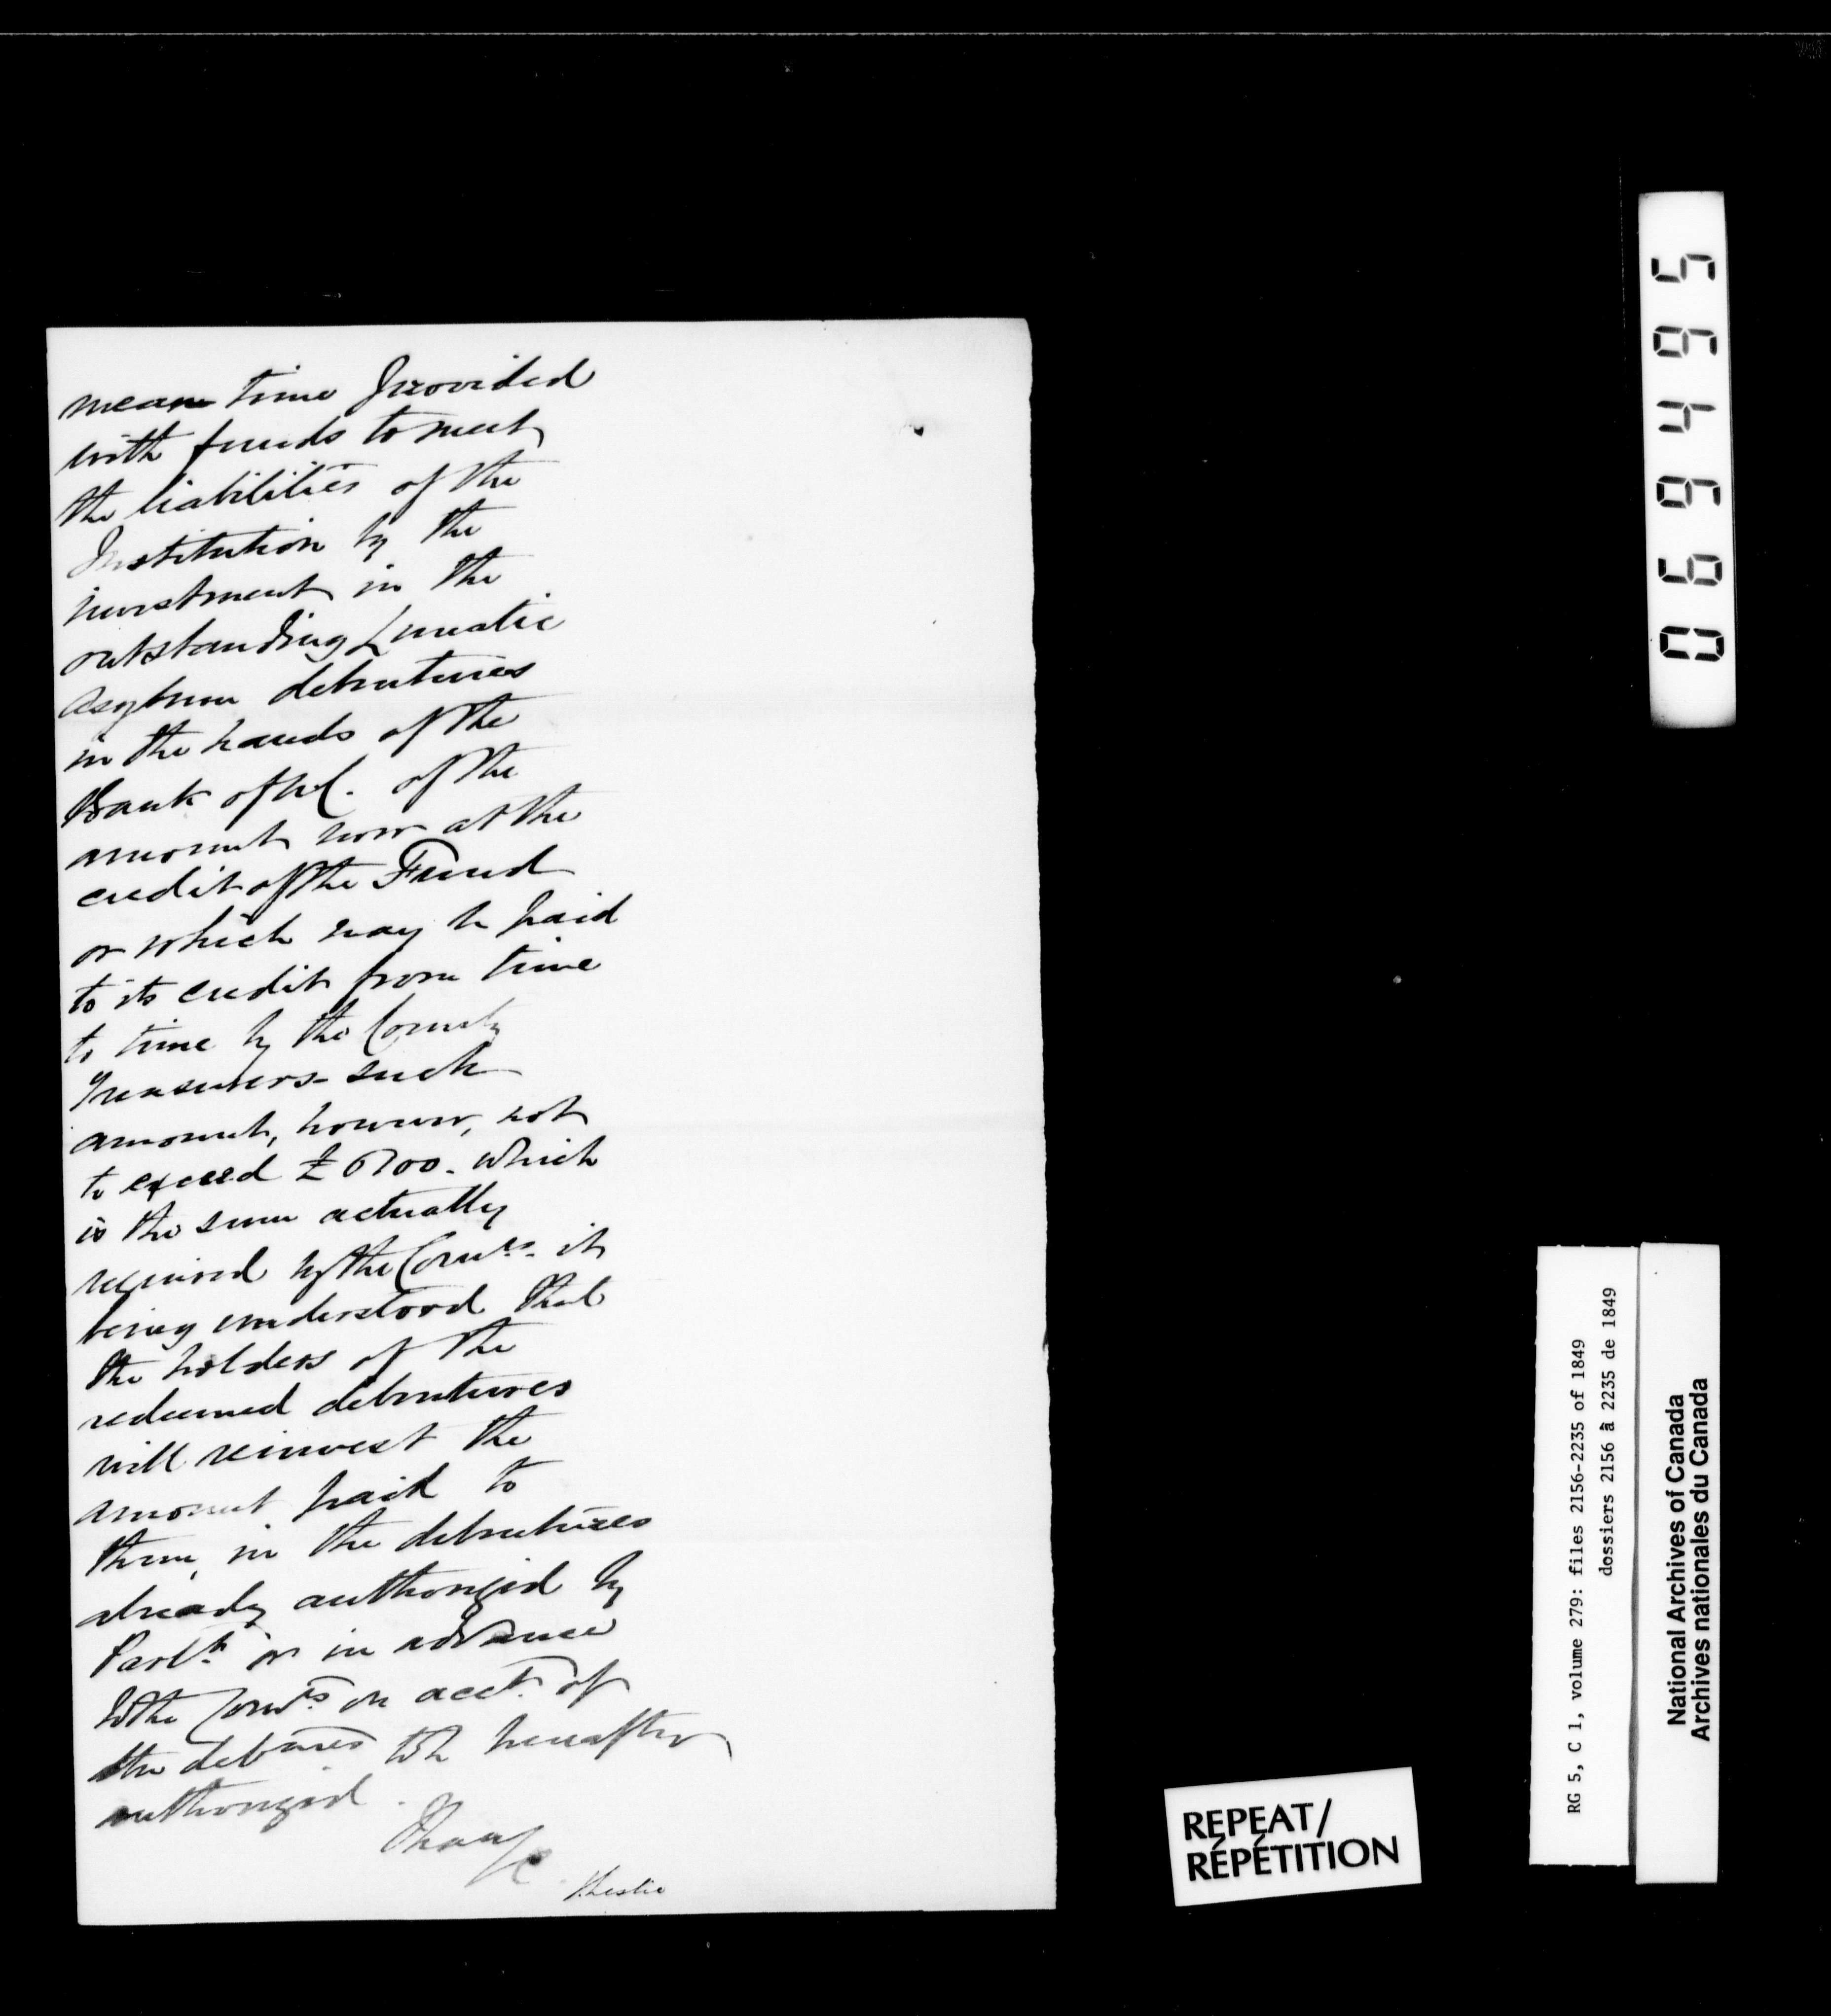 mean time provided
with funds to meet
the liabilities of the
Institution by the
investment in the
outstanding Lunatic
Asylum debentures
in the hands of the
Bank of U.C. of the
amount now at the
credit of the Fund
or which may be paid
to its credit from time
to time by the County
Treasurers - such
amount, however, not
to exceed £6700. which
is the sum actually
required by the Comrs. it
being understood that
the holders of the
redeemed debentures
will reinvest the
amount paid to
them, in the debentures
already authorized by
Parlt. or in advance
to the Comrs on acct. of
the debures to be hereafter
authorized.
I have &c
J. Leslie
069495
RG 5, C 1, volume 279: files 2156-2235 of 1849
dossiers 2156 à 2235 de 1849
National Archives of Canada
Archives nationales du Canada
REPEAT/
RÉPÉTITION